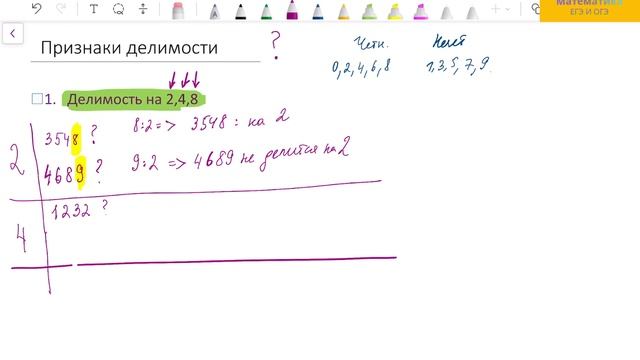 Математика
ЕГЭ И ОГЭ
Признаки делимости ?
Четн. Нечет
0,2,4,6,8 1,3,5,7,9.
1. Делимость на 2,4,8
2
3548 ? 8:2=> 3548 : на 2
4689 ? 9:2 => 4689 не делится на 2
4
1232 ?